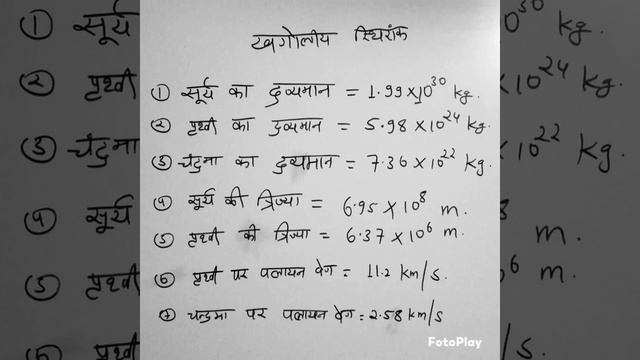 खगोलीय स्थिरांक
① सूर्य का द्रव्यमान = 1.99×10³⁰ kg.
② पृथ्वी का द्रव्यमान = 5.98×10²⁴ kg.
③ चंद्रमा का द्रव्यमान = 7.36×10²² kg.
④ सूर्य की त्रिज्या = 6.95×10⁸ m.
⑤ पृथ्वी की त्रिज्या = 6.37×10⁶ m.
⑥ पृथ्वी पर पलायन वेग = 11.2 km/s.
⑦ चन्द्रमा पर पलायन वेग = 2.58 km/s
FotoPlay